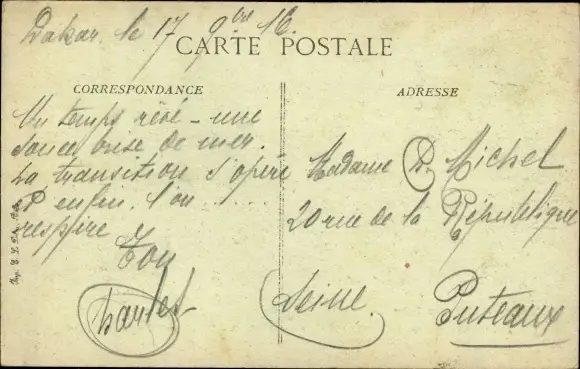 Dakar, le 17 9bre 16.
CARTE POSTALE
CORRESPONDANCE
Un temps rêvé – une
douce brise de mer.
La transition s'opère
& enfin l'on ....
respire
Ton
Charles
ADRESSE
Madame D. Michel
20 rue de la République
Puteaux
Seine.